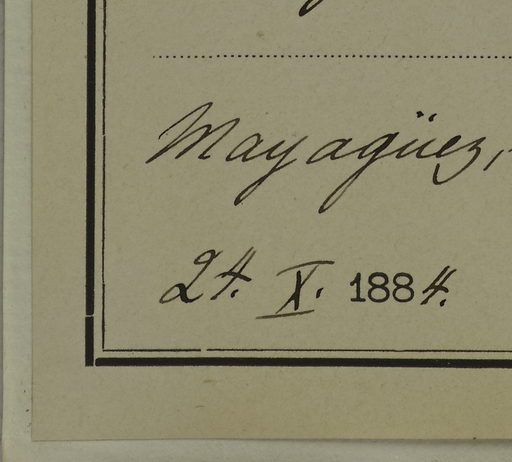 Mayagüez,
24. X. 1884.